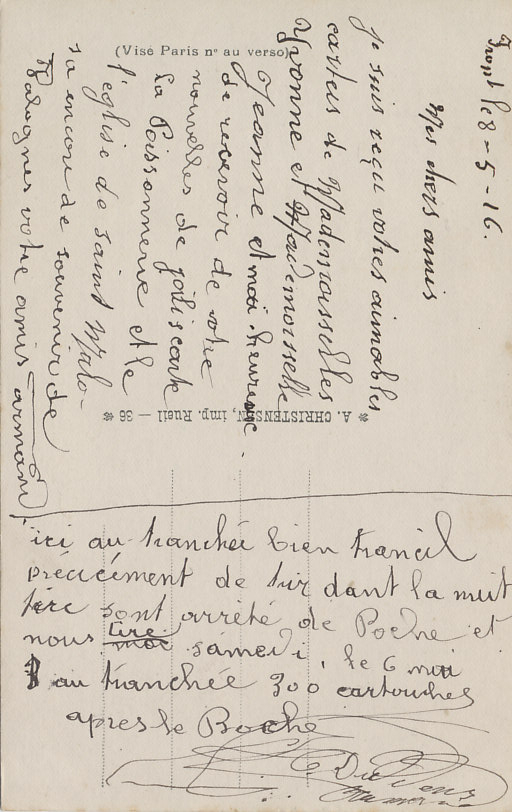 Front le 8-5-16.
Mes chers amis
je suis reçu votres aimables
cartes de Mademoisselles
Yvonne et Mademoisselle
Jeanne et moi heureuse
de recevoir de votre
nouvelles de jolis carte
la Poissonnerie et le
l'église de saint Malo
sa encore de souvenir de
Valognes votre amis armand
(Visé Paris nº au verso)
A. CHRISTENSEN, imp. Rueil — 36
ici au tranchée bien trancil
précicément de tir dant la nuit
sont arrêté de Poche et
nous tire samedi, le 6 mai
au tranchée 300 cartouches
apres le Boche